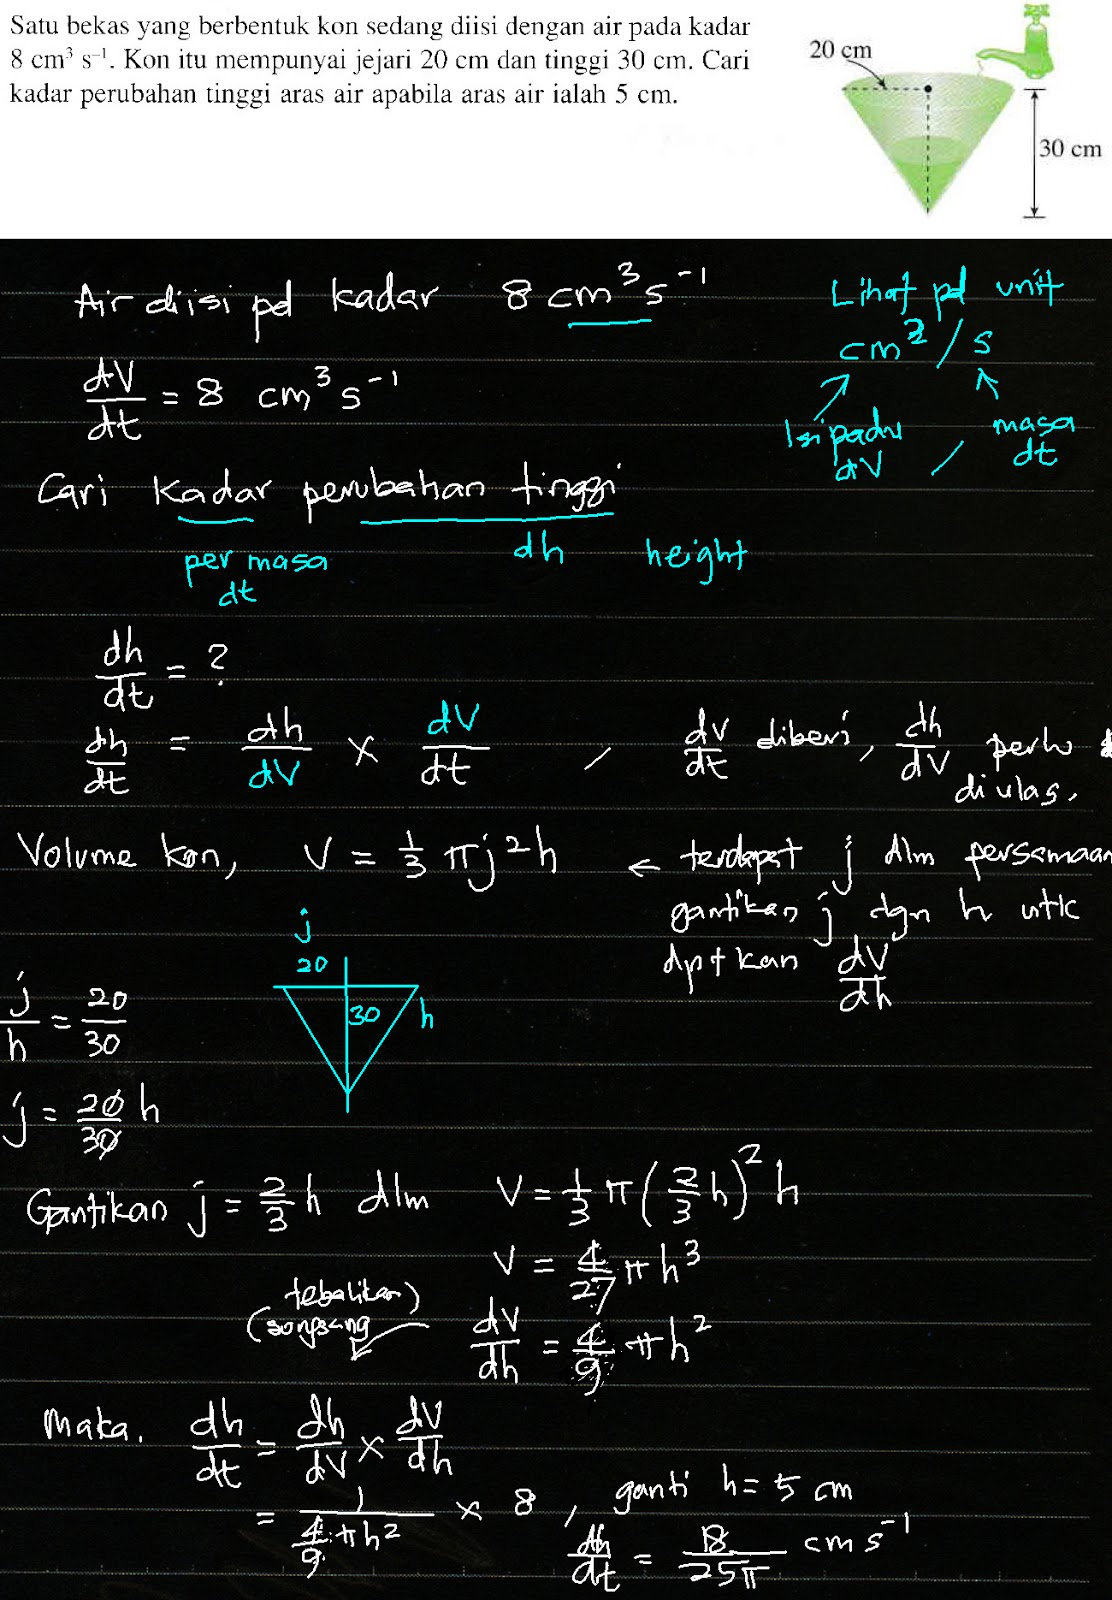 Satu bekas yang berbentuk kon sedang diisi dengan air pada kadar
8 cm³ s⁻¹. Kon itu mempunyai jejari 20 cm dan tinggi 30 cm. Cari
kadar perubahan tinggi aras air apabila aras air ialah 5 cm.
20 cm
30 cm
Air diisi pd kadar 8 cm³ s⁻¹
Lihat pd unit
cm³ / s
Isipadu dV / masa dt
dV/dt = 8 cm³ s⁻¹
Cari kadar perubahan tinggi
per masa dt
dh height
dh/dt = ?
dh/dt = dh/dV × dV/dt , dV/dt diberi, dh/dV perlu
diulas.
Volume kon, V = 1/3 πj²h ← terdapat j dlm persamaan
gantikan j dgn h utk
dptkan dV/dh
j
20
30
h
j/h = 20/30
j = 20/30 h
Gantikan j = 2/3 h dlm V = 1/3 π(2/3 h)² h
V = 4/27 πh³
tebalikan)
(songsang
dV/dh = 4/9 πh²
Maka. dh/dt = dh/dV × dV/dh
= 1/(4/9 πh²) × 8 , ganti h = 5 cm
dh/dt = 18/25π cm s⁻¹